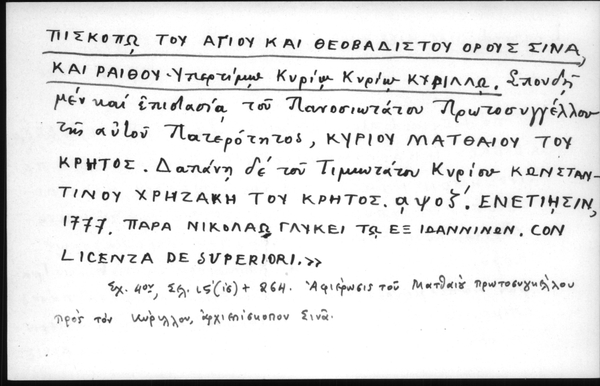 ΠΙΣΚΟΠῼ ΤΟΥ ΑΓΙΟΥ ΚΑΙ ΘΕΟΒΑΔΙΣΤΟΥ ΟΡΟΥΣ ΣΙΝΑ,
ΚΑΙ ΡΑΙΘΟΥ Ὑπερτίμῳ Κυρίῳ Κυρίῳ ΚΥΡΙΛΛῼ. Σπουδῇ
μέν καί ἐπιστασίᾳ τοῦ Πανοσιωτάτου Πρωτοσυγγέλλου
τῆς αὐτοῦ Πατερότητος, ΚΥΡΙΟΥ ΜΑΤΘΑΙΟΥ ΤΟΥ
ΚΡΗΤΟΣ. Δαπάνῃ δέ τοῦ Τιμιωτάτου Κυρίου ΚΩΝΣΤΑΝ-
ΤΙΝΟΥ ΧΡΗΖΑΚΗ ΤΟΥ ΚΡΗΤΟΣ. αψοζ΄. ΕΝΕΤΙΗΣΙΝ,
1777. ΠΑΡΑ ΝΙΚΟΛΑῼ ΓΛΥΚΕΙ Τῼ ΕΞ ΙΩΑΝΝΙΝΩΝ. CON
LICENZA DE SUPERIORI.»
Σχ. 4ον, Σελ. ις΄(16) + 264. Ἀφιέρωσις τοῦ Ματθαίου πρωτοσυγκέλλου
πρός τόν Κύριλλον, ἀρχιεπίσκοπον Σινᾶ.